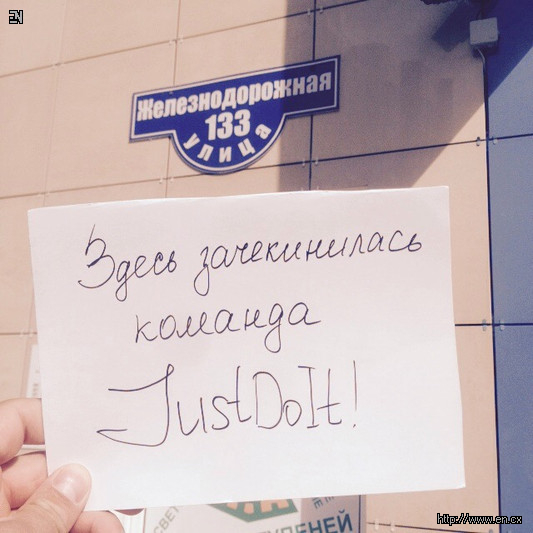 EN
Железнодорожная
133
улица
Здесь зачекинилась
команда
JustDoIt!
http://www.en.cx